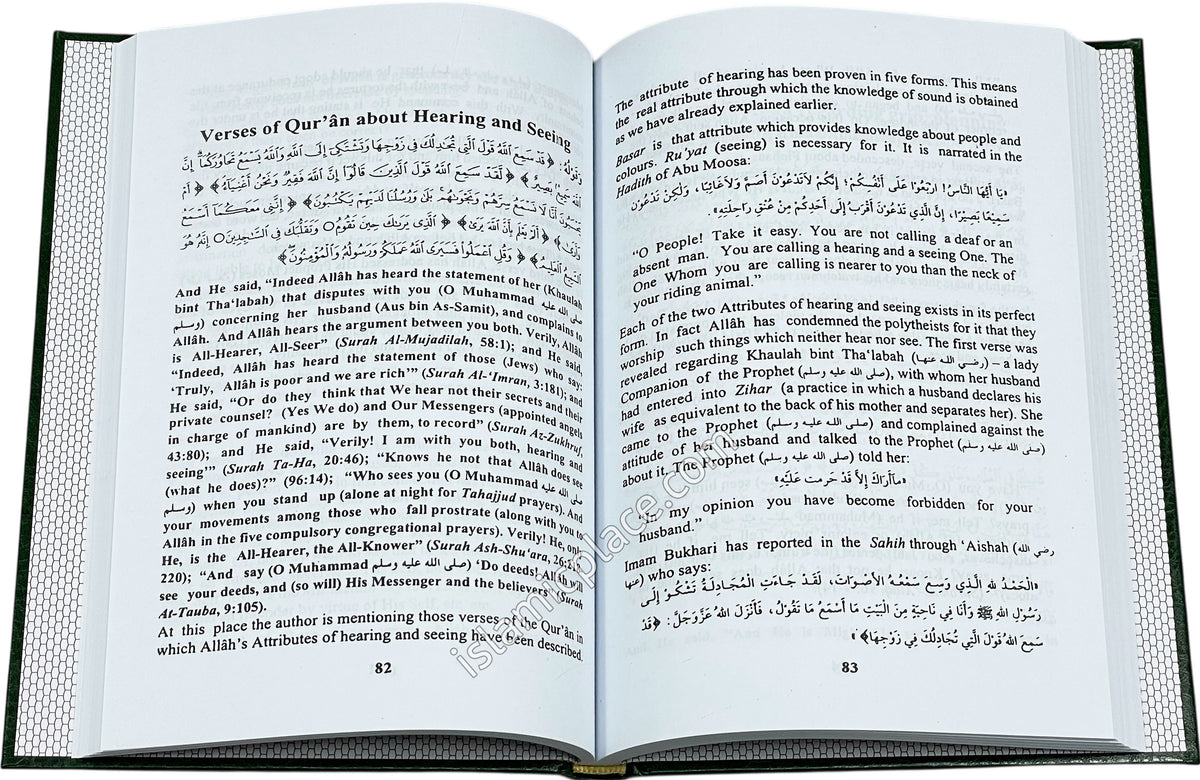 Verses of Qur’ân about Hearing and Seeing
وَقَوْلُهُ: ﴿قَدْ سَمِعَ اللَّهُ قَوْلَ الَّتِي تُجَادِلُكَ فِي زَوْجِهَا وَتَشْتَكِي إِلَى اللَّهِ وَاللَّهُ يَسْمَعُ تَحَاوُرَكُمَا إِنَّ
اللَّهَ سَمِيعٌ بَصِيرٌ﴾ ﴿لَقَدْ سَمِعَ اللَّهُ قَوْلَ الَّذِينَ قَالُوا إِنَّ اللَّهَ فَقِيرٌ وَنَحْنُ أَغْنِيَاءُ﴾ ﴿أَمْ
يَحْسَبُونَ أَنَّا لَا نَسْمَعُ سِرَّهُمْ وَنَجْوَاهُمْ بَلَى وَرُسُلُنَا لَدَيْهِمْ يَكْتُبُونَ﴾ ﴿إِنَّنِي مَعَكُمَا أَسْمَعُ
وَأَرَى﴾ ﴿أَلَمْ يَعْلَمْ بِأَنَّ اللَّهَ يَرَى﴾ ﴿الَّذِي يَرَاكَ حِينَ تَقُومُ ○ وَتَقَلُّبَكَ فِي السَّاجِدِينَ ○ إِنَّهُ هُوَ
السَّمِيعُ الْعَلِيمُ﴾ ﴿وَقُلِ اعْمَلُوا فَسَيَرَى اللَّهُ عَمَلَكُمْ وَرَسُولُهُ وَالْمُؤْمِنُونَ﴾
And He said, “Indeed Allâh has heard the statement of her (Khaulah
bint Tha‘labah) that disputes with you (O Muhammad صلى الله عليه
وسلم) concerning her husband (Aus bin As-Samit), and complains to
Allâh. And Allâh hears the argument between you both. Verily, Allâh
is All-Hearer, All-Seer” (Surah Al-Mujadilah, 58:1); and He said,
“Indeed, Allâh has heard the statement of those (Jews) who say:
‘Truly, Allâh is poor and we are rich’” (Surah Al-‘Imran, 3:181); and
He said, “Or do they think that We hear not their secrets and their
private counsel? (Yes We do) and Our Messengers (appointed angels
in charge of mankind) are by them, to record” (Surah Az-Zukhruf,
43:80); and He said, “Verily! I am with you both, hearing and
seeing’” (Surah Ta-Ha, 20:46); “Knows he not that Allâh does see
(what he does)?” (96:14); “Who sees you (O Muhammad صلى الله عليه
وسلم) when you stand up (alone at night for Tahajjud prayers). And
your movements among those who fall prostrate (along with you to
Allâh in the five compulsory congregational prayers). Verily! He, only
He, is the All-Hearer, the All-Knower” (Surah Ash-Shu‘ara, 26:218-
220); “And say (O Muhammad صلى الله عليه وسلم) ‘Do deeds! Allâh will
see your deeds, and (so will) His Messenger and the believers” (Surah
At-Tauba, 9:105).
At this place the author is mentioning those verses of the Qur’ân in
which Allâh’s Attributes of hearing and seeing have been described.
82
The attribute of hearing has been proven in five forms. This means
the real attribute through which the knowledge of sound is obtained
as we have already explained earlier.
Basar is that attribute which provides knowledge about people and
colours. Ru’yat (seeing) is necessary for it. It is narrated in the
Hadith of Abu Moosa:
«يَا أَيُّهَا النَّاسُ! ارْبَعُوا عَلَى أَنْفُسِكُمْ؛ إِنَّكُمْ لَا تَدْعُونَ أَصَمَّ وَلَا غَائِبًا، وَلَكِنْ تَدْعُونَ
سَمِيعًا بَصِيرًا، إِنَّ الَّذِي تَدْعُونَ أَقْرَبُ إِلَى أَحَدِكُمْ مِنْ عُنُقِ رَاحِلَتِهِ».
“O People! Take it easy. You are not calling a deaf or an
absent man. You are calling a hearing and a seeing One. The
One Whom you are calling is nearer to you than the neck of
your riding animal.”
Each of the two Attributes of hearing and seeing exists in its perfect
form. In fact Allâh has condemned the polytheists for it that they
worship such things which neither hear nor see. The first verse was
revealed regarding Khaulah bint Tha‘labah (رضي الله عنها) – a lady
Companion of the Prophet (صلى الله عليه وسلم), with whom her husband
had entered into Zihar (a practice in which a husband declares his
wife as equivalent to the back of his mother and separates her). She
came to the Prophet (صلى الله عليه وسلم) and complained against the
attitude of her husband and talked to the Prophet (صلى الله عليه وسلم)
about it. The Prophet (صلى الله عليه وسلم) told her:
«مَا أَرَاكَ إِلاَّ قَدْ حَرمت عَلَيْهِ»
“In my opinion you have become forbidden for your
husband.”
Imam Bukhari has reported in the Sahih through ‘Aishah (رضي الله
عنها) who says:
«الْحَمْدُ للهِ الَّذِي وَسِعَ سَمْعُهُ الأَصْوَاتَ، لَقَدْ جَاءَتِ الْمُجَادِلَةُ تَشْكُو إِلَى
رَسُولِ اللهِ ﷺ وَأَنَا فِي نَاحِيَةٍ مِنَ الْبَيْتِ مَا أَسْمَعُ مَا تَقُولُ، فَأَنْزَلَ اللهُ عَزَّوَجَلَّ: ﴿قَدْ
سَمِعَ اللهُ قَوْلَ الَّتِي تُجَادِلُكَ فِي زَوْجِهَا﴾»
83
islamicplace.com